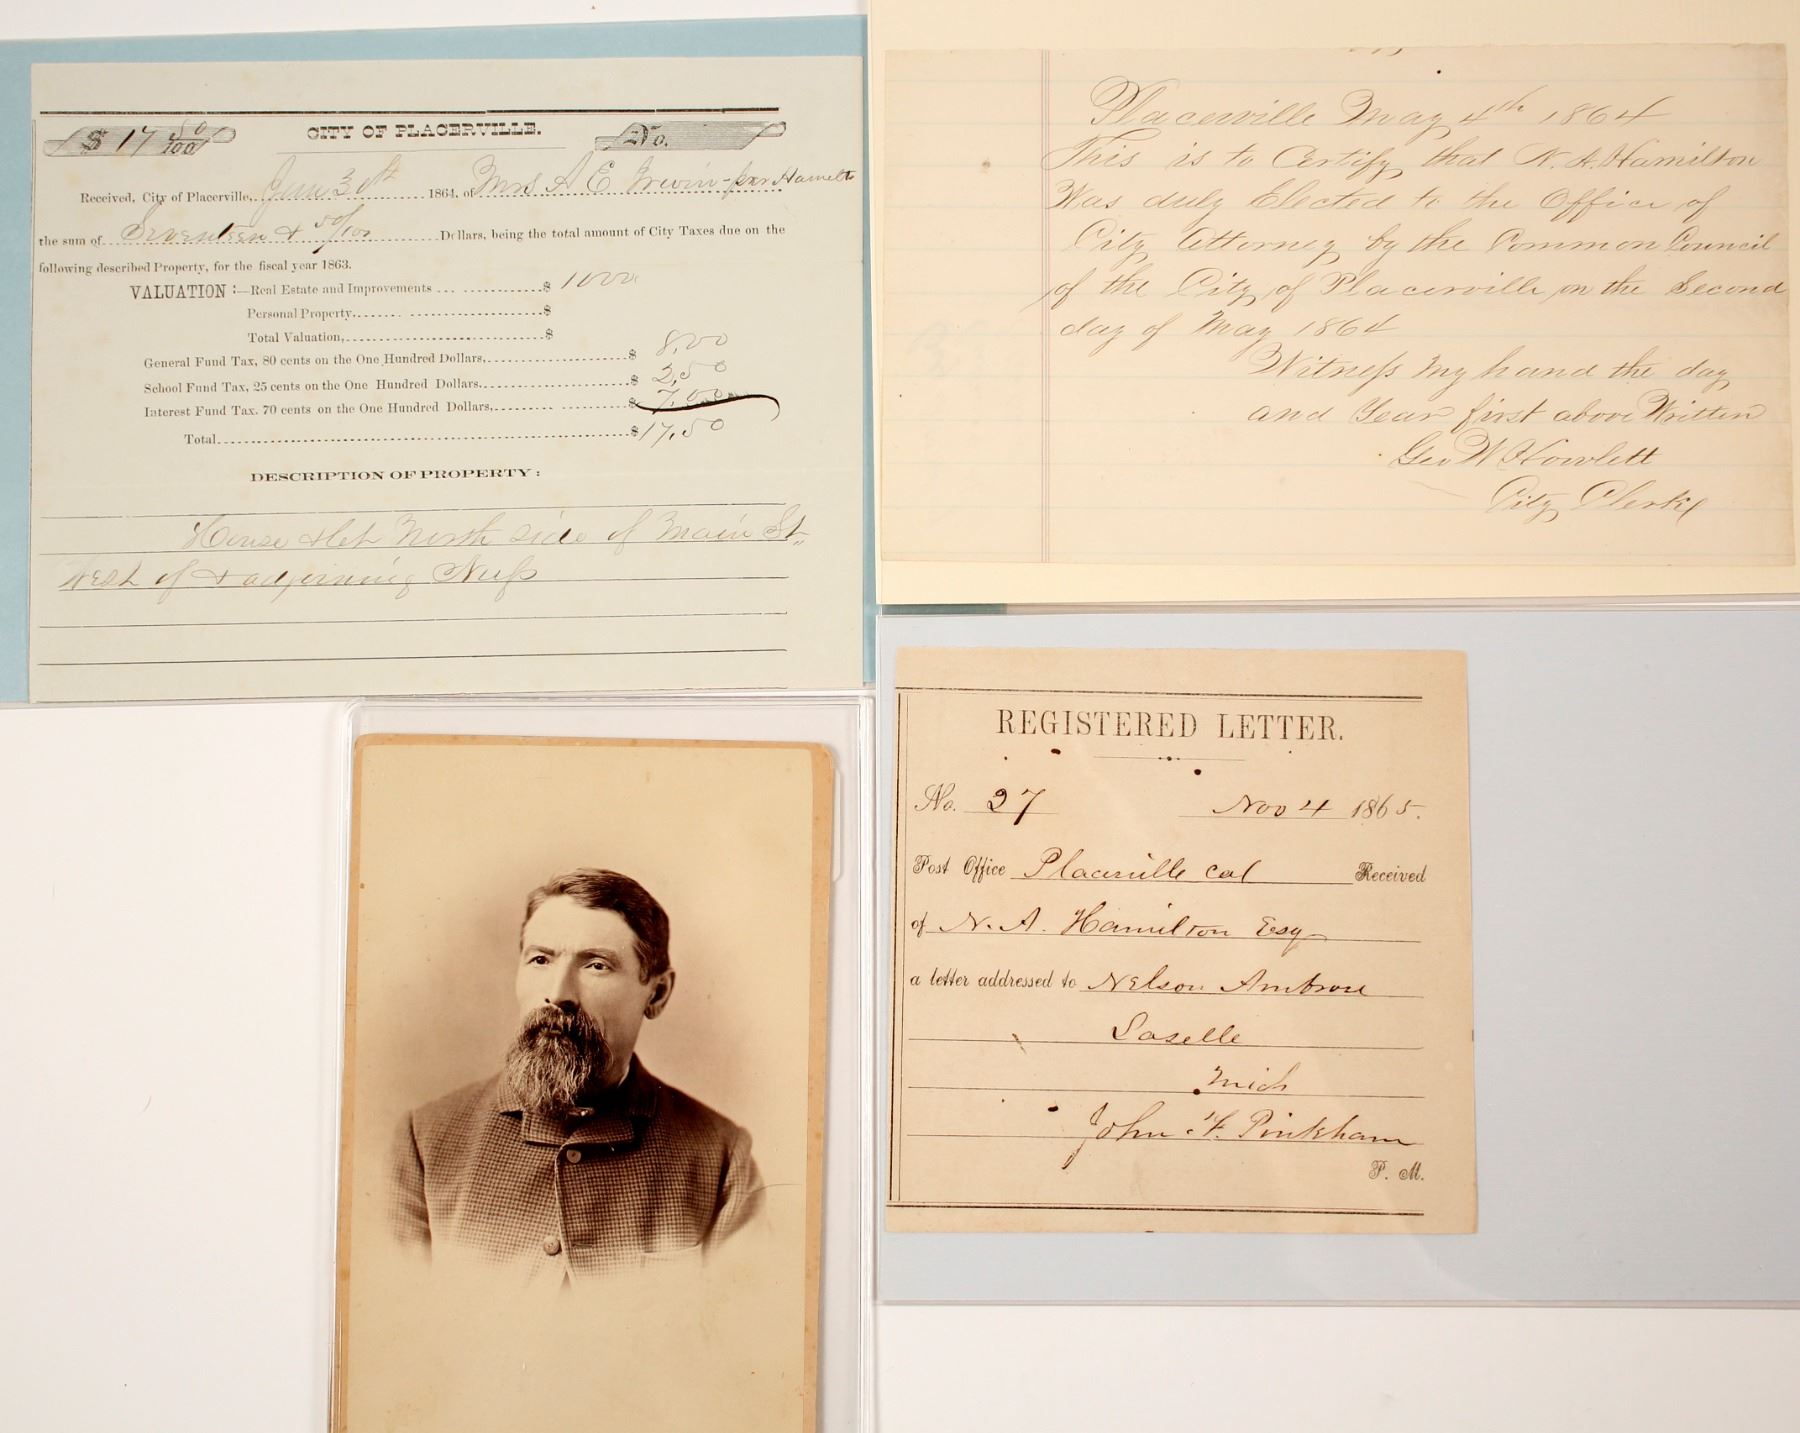 $ 17 50/100
CITY OF PLACERVILLE.
No.
Received, City of Placerville, Jan 30th 1864, of Mrs A E Irwin - per Hamilto
the sum of Seventeen & 50/100 Dollars, being the total amount of City Taxes due on the
following described Property, for the fiscal year 1863.
VALUATION :—Real Estate and Improvements $ 1000
Personal Property, $
Total Valuation, $
General Fund Tax, 80 cents on the One Hundred Dollars, $ 8,00
School Fund Tax, 25 cents on the One Hundred Dollars. $ 2,50
Interest Fund Tax. 70 cents on the One Hundred Dollars, $ 7,00
Total $ 17,50
DESCRIPTION OF PROPERTY :
House & lot North side of Main St.
West of & adjoining
Placerville May 4th 1864
This is to Certify that N. A. Hamilton
Was duly Elected to the Office of
City Attorney by the Common Council
of the City of Placerville on the Second
day of May 1864
Witness my hand the day
and Year first above Written
Geo W Howlett
City Clerk
REGISTERED LETTER.
No. 27 Nov 4 1865.
Post Office Placerville Cal Received
of N. A. Hamilton Esq
a letter addressed to Nelson Ambrose
Laselle
Mich
John F. Pinkham
P. M.